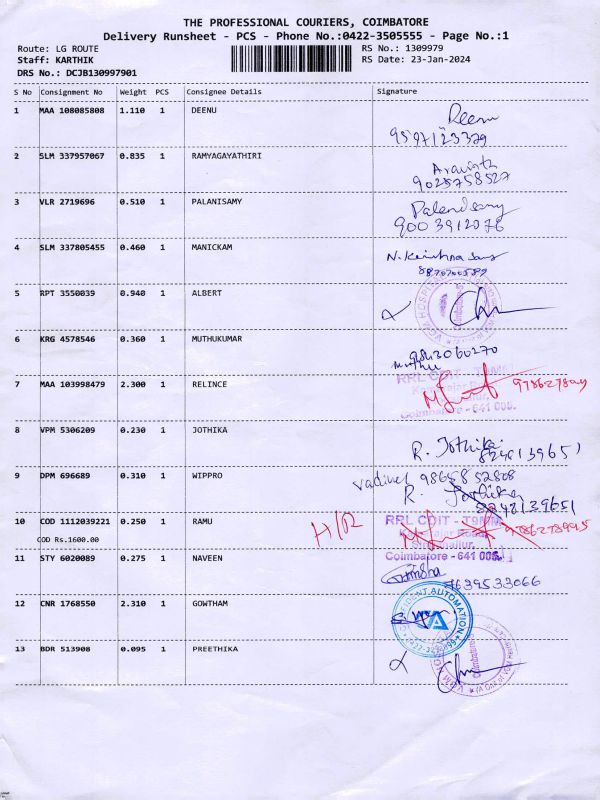 THE PROFESSIONAL COURIERS, COIMBATORE
Delivery Runsheet - PCS - Phone No.:0422-3505555 - Page No.:1
Route: LG ROUTE RS No.: 1309979
Staff: KARTHIK RS Date: 23-Jan-2024
DRS No.: DCJB130997901
S No Consignment No Weight PCS Consignee Details Signature
1 MAA 108085808 1.110 1 DEENU Deenu
9597123379
2 SLM 337957067 0.835 1 RAMYAGAYATHIRI Aravinth
9025758527
3 VLR 2719696 0.510 1 PALANISAMY Palanisamy
9003912076
4 SLM 337805455 0.460 1 MANICKAM N. Krishnasamy
5 RPT 3550039 0.940 1 ALBERT
6 KRG 4578546 0.360 1 MUTHUKUMAR 9843060270
Muthu
RRL CDIT - T9MM
7 MAA 103998479 2.300 1 RELINCE
Coimbatore - 641 005.
8 VPM 5306209 0.230 1 JOTHIKA R. Jothika
9 DPM 696689 0.310 1 WIPPRO Vadivel 9865852808
R. Jothika
8248139651
10 COD 1112039221 0.250 1 RAMU H/R RRL CDIT - T9MM
COD Rs.1600.00
Coimbatore - 641 005.
11 STY 6020089 0.275 1 NAVEEN 9639533066
12 CNR 1768550 2.310 1 GOWTHAM
13 BDR 513908 0.095 1 PREETHIKA